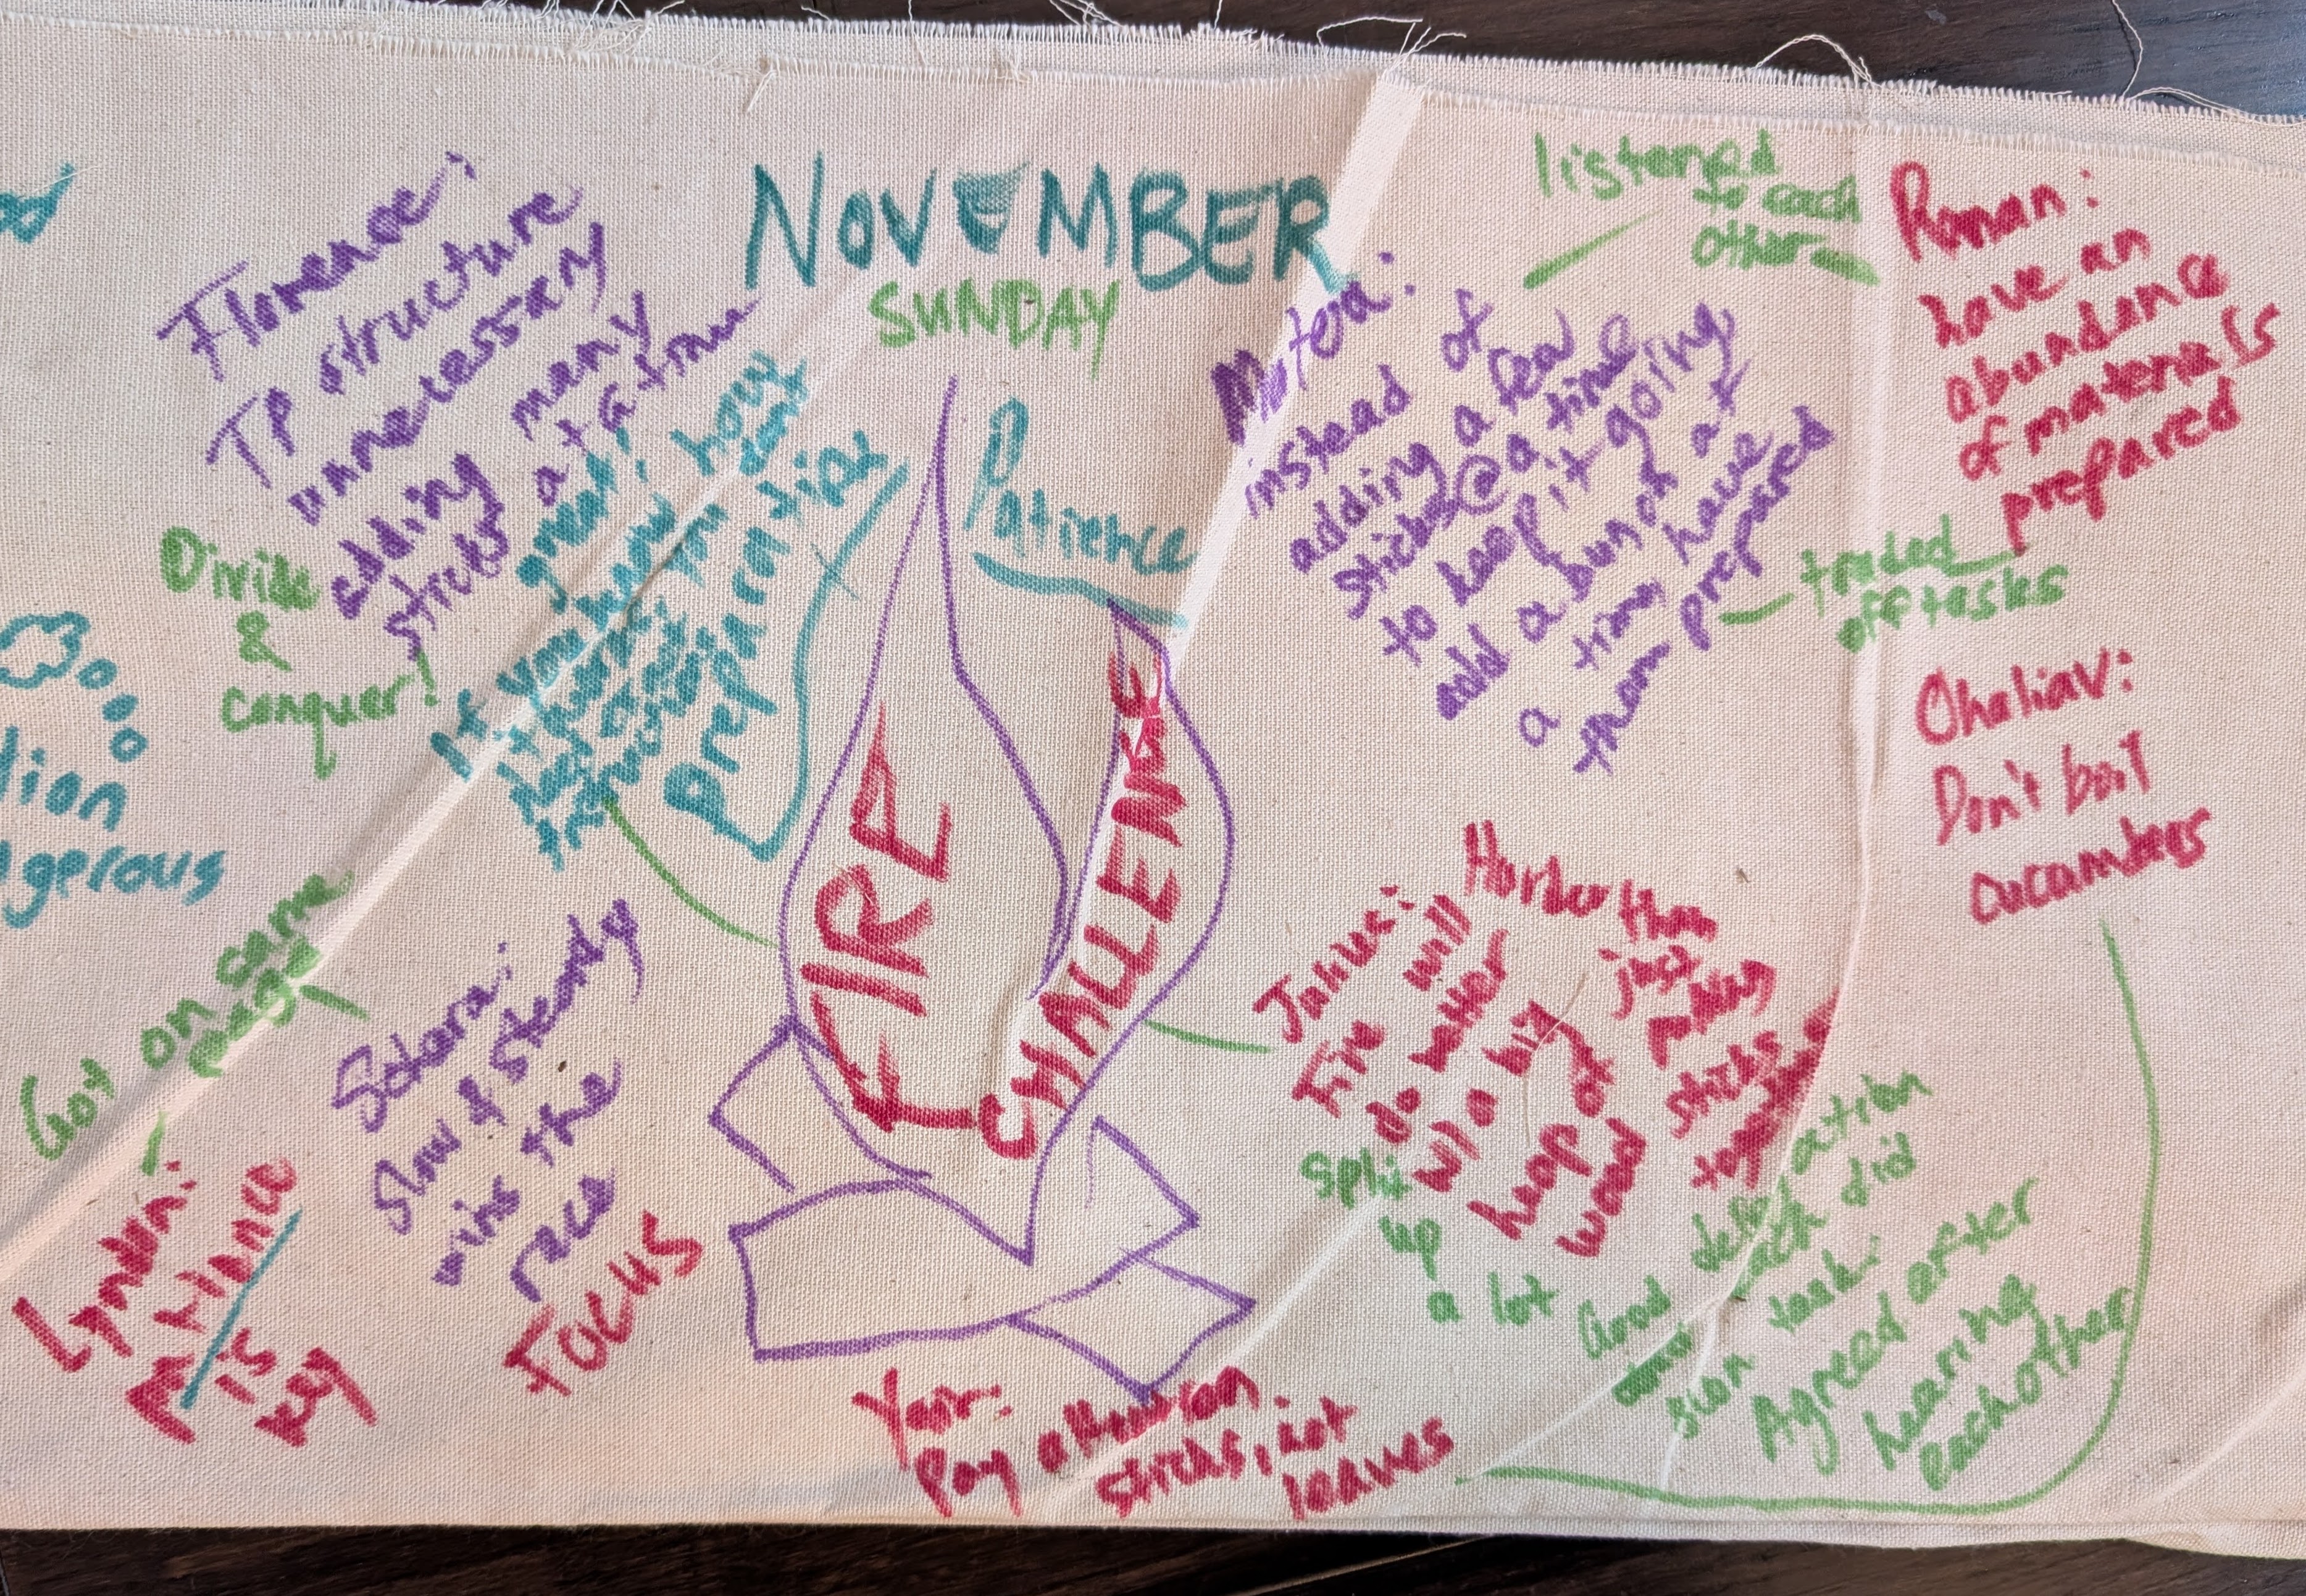 NOVEMBER
SUNDAY
Florence:
TP structure
unnecessary
adding many
sticks at a time
Divide
&
conquer!
great!
If you have how
preparation
Patience
FIRE
CHALLENGE
Matea:
instead of
adding a few
sticks @ a time
to keep it going
add a bunch at
a time, have
them prepared
listened
to each
other
Roman:
have an
abundance
of materials
prepared
traded
off tasks
Ohaliav:
Don't boil
cucumbers
gerous
Got on same
page
slow & steady
wins the
race
FOCUS
Lynden:
Patience
is
key
Julius:
Fire will
do better
w/ a big
heap of
wood
Harder than
just
putting
sticks
together
split
up
a lot
Good
each did
task
Agreed after
hearing
eachother
Yair:
Pay attention
sticks, not
leaves